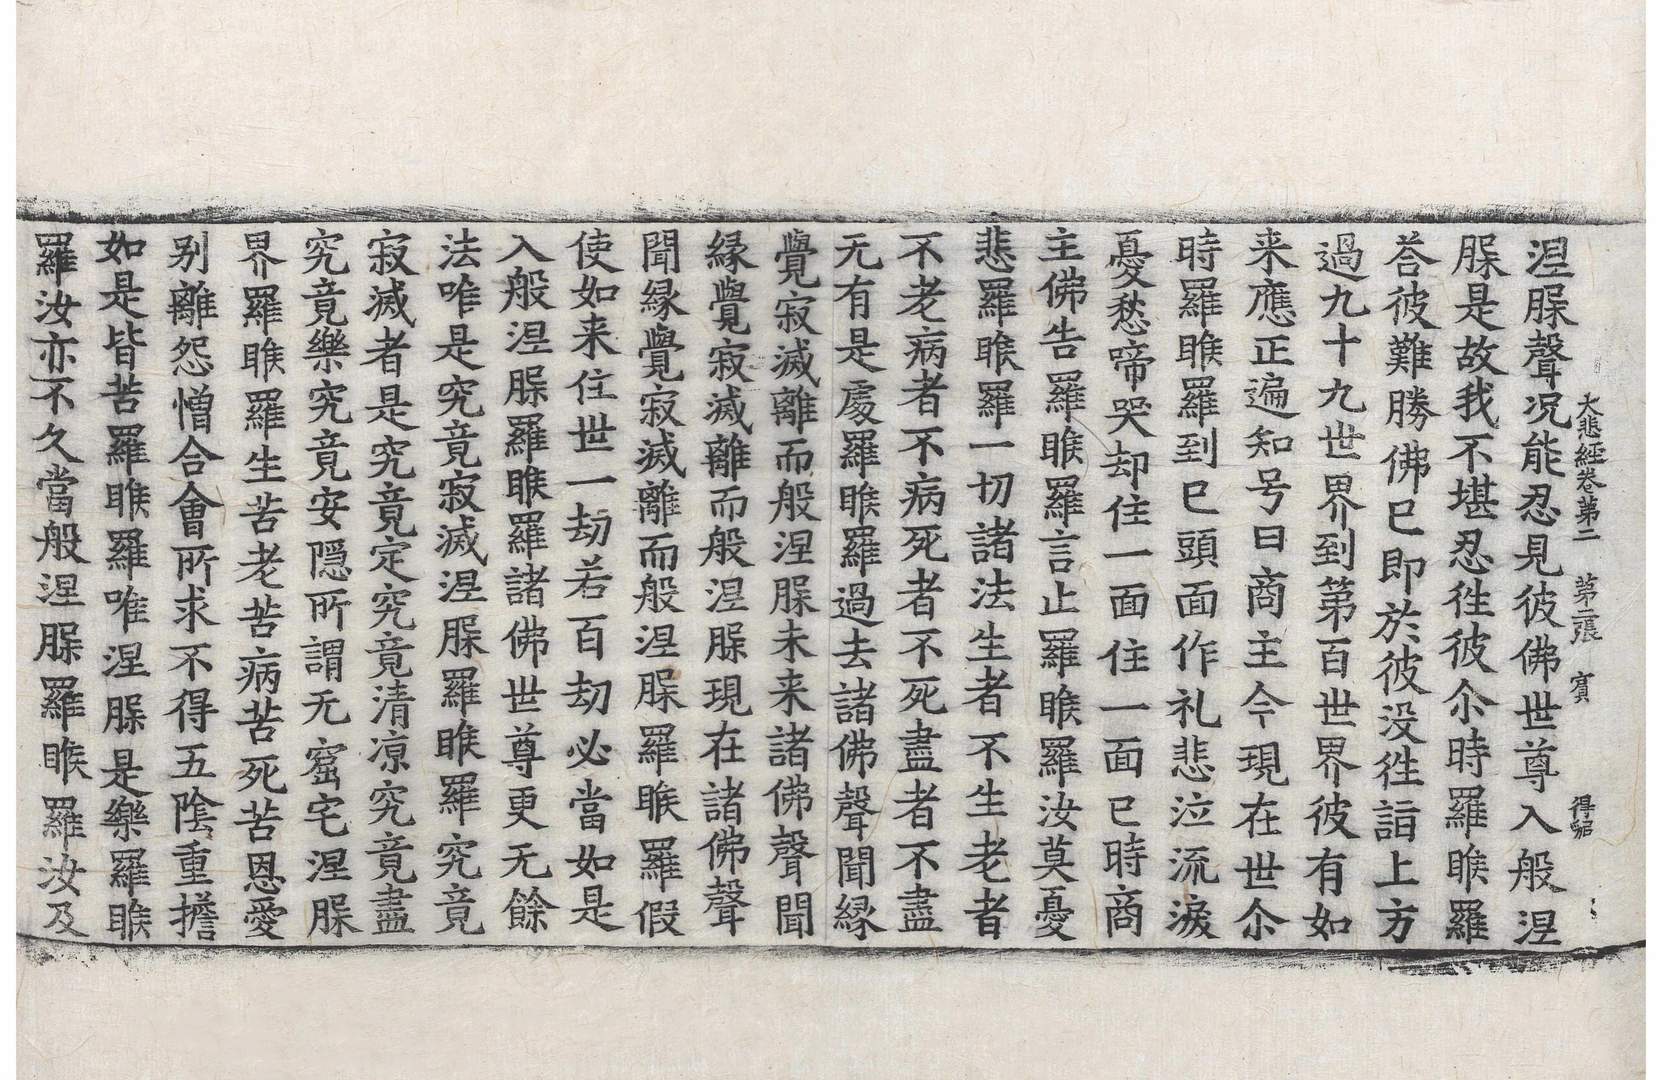 大悲經卷第二　第二張　賓
涅槃聲况能忍見彼佛世尊入般涅
槃是故我不堪忍徃彼尒時羅睺羅
荅彼難勝佛已即於彼没徃詣上方
過九十九世界到第百世界彼有如
来應正遍知号曰商主今現在世尒
時羅睺羅到已頭面作礼悲泣流淚
憂愁啼哭却住一面住一面已時商
主佛告羅睺羅言止羅睺羅汝莫憂
悲羅睺羅一切諸法生者不生老者
不老病者不病死者不死盡者不盡
无有是處羅睺羅過去諸佛聲聞縁
覺寂滅離而般涅槃未来諸佛聲聞
縁覺寂滅離而般涅槃現在諸佛聲
聞縁覺寂滅離而般涅槃羅睺羅假
使如来住世一劫若百劫必當如是
入般涅槃羅睺羅諸佛世尊更无餘
法唯是究竟寂滅涅槃羅睺羅究竟
寂滅者是究竟定究竟清凉究竟盡
究竟樂究竟安隱所謂无窟宅涅槃
界羅睺羅生苦老苦病苦死苦恩愛
别離怨憎合會所求不得五陰重擔
如是皆苦羅睺羅唯涅槃是樂羅睺
羅汝亦不久當般涅槃羅睺羅汝及